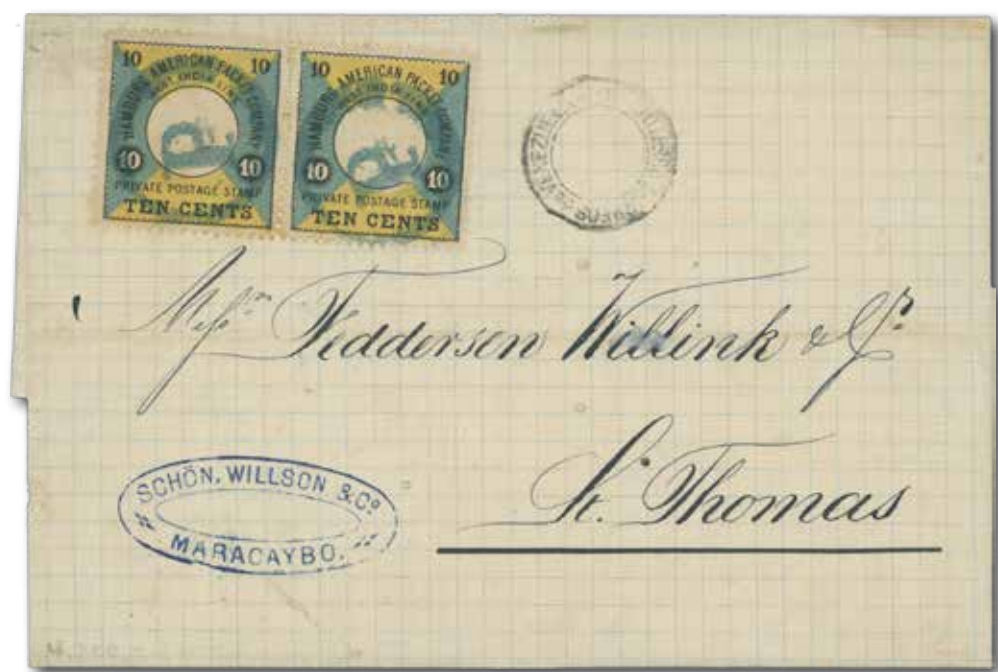 10 10
HAMBURG AMERICAN PACKET COMPANY
WEST INDIA LINE
10 10
PRIVATE POSTAGE STAMP
TEN CENTS
10 10
HAMBURG AMERICAN PACKET COMPANY
WEST INDIA LINE
10 10
PRIVATE POSTAGE STAMP
TEN CENTS
VENEZUELA
Messrs Feddersen Willink & Co
St. Thomas
SCHÖN, WILLSON & Co
MARACAYBO.